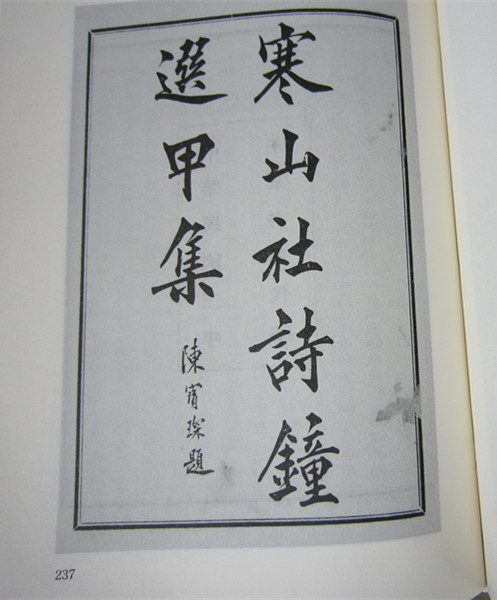 寒山社詩鐘
選甲集
陳寶琛題
237